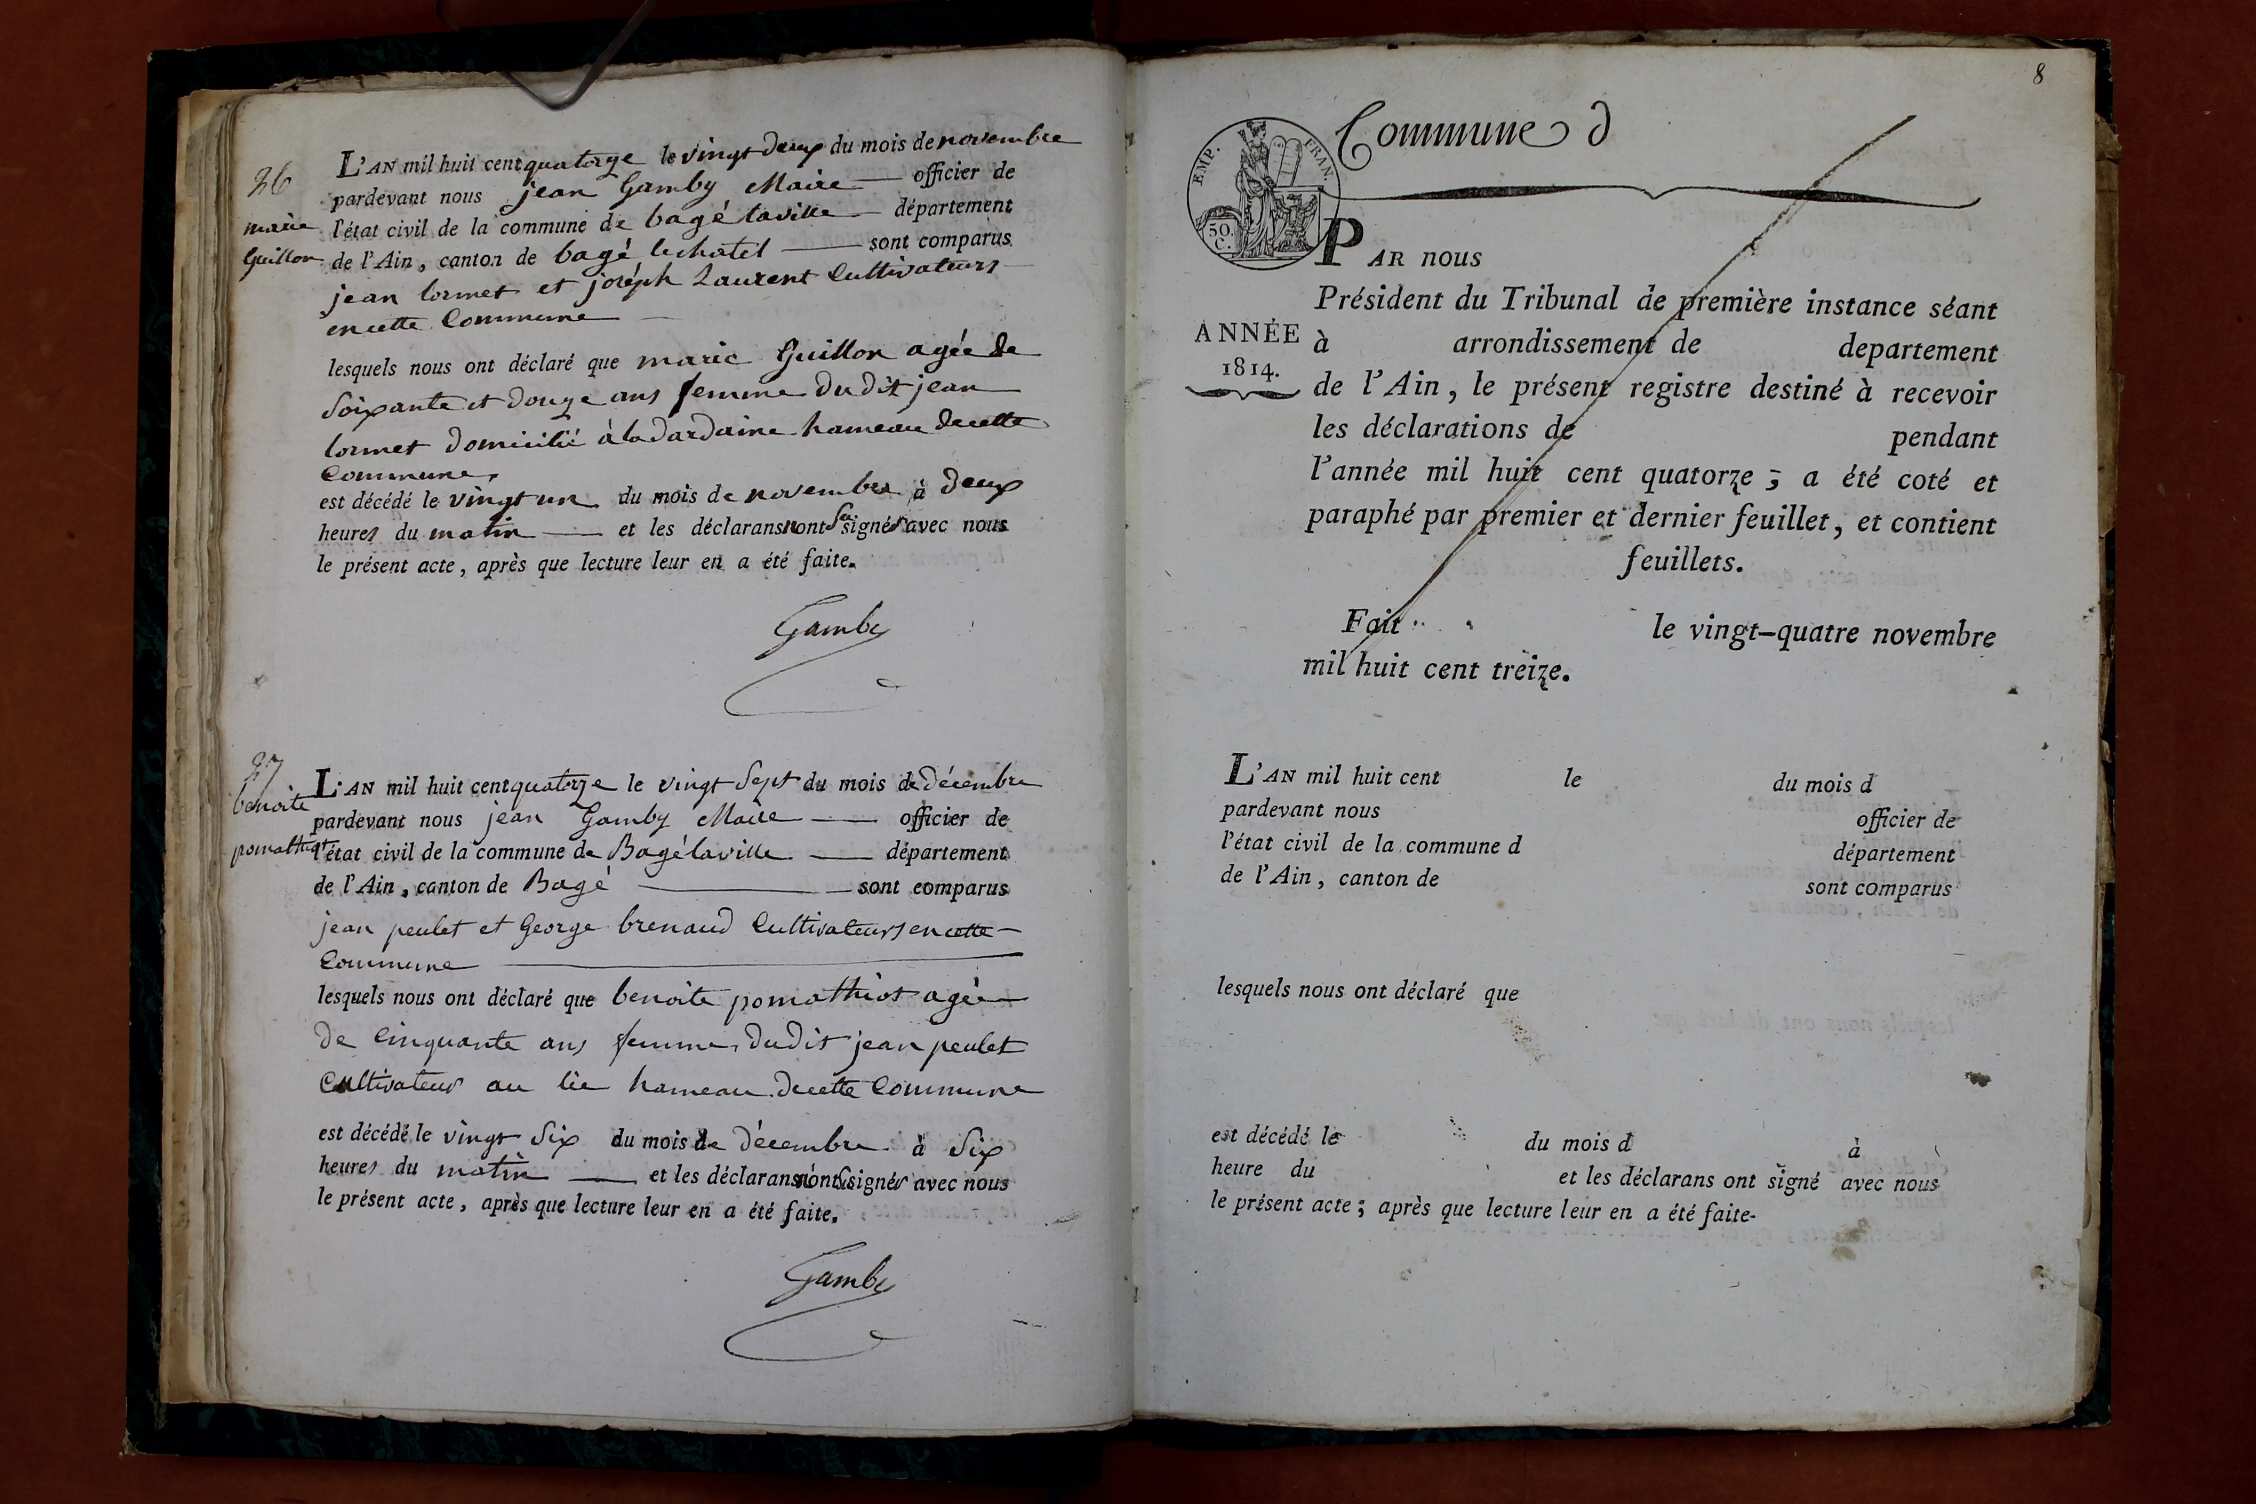 36
marie
Guillon
L'AN mil huit cent quatorze le vingt deux du mois de novembre
pardevant nous jean Gamby Maire officier de
l'état civil de la commune de bagé laville département
de l'Ain, canton de bagé lechatel sont comparus
jean lormet et joséph Laurent Cultivateurs
en cette Commune
lesquels nous ont déclaré que marie Guillon agée de
Soixante et douze ans femme du dit jean
lormet domicilié à la dardaine hameau de cette
Commune,
est décédé le vingt un du mois de novembre à deux
heures du matin et les déclarans nont Su signér avec nous
le présent acte, après que lecture leur en a été faite.
Gamby
37
benoite
pomathiot
L'AN mil huit cent quatorze le vingt Sept du mois de décembre
pardevant nous jean Gamby Maire officier de
l'état civil de la commune de Bagé laville département
de l'Ain, canton de Bagé sont comparus
jean peulet et George brenaud Cultivateurs en cette
Commune
lesquels nous ont déclaré que benoite pomathiot agée
de Cinquante ans femme du dit jean peulet
Cultivateur au lie hameau de cette Commune
est décédé le vingt Six du mois de décembre à Six
heures du matin et les déclarans n'ont Su signér avec nous
le présent acte, après que lecture leur en a été faite.
Gamby
8
Commune d
EMP. FRAN.
50.
C.
PAR nous
Président du Tribunal de première instance séant
ANNÉE
1814.
à arrondissement de departement
de l'Ain, le présent registre destiné à recevoir
les déclarations de pendant
l'année mil huit cent quatorze ; a été coté et
paraphé par premier et dernier feuillet, et contient
feuillets.
Fait le vingt-quatre novembre
mil huit cent treize.
L'AN mil huit cent le du mois d
pardevant nous officier de
l'état civil de la commune d département
de l'Ain, canton de sont comparus
lesquels nous ont déclaré que
est décédé le du mois d à
heure du et les déclarans ont signé avec nous
le présent acte ; après que lecture leur en a été faite.